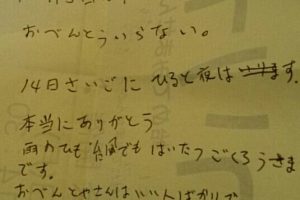 おべんとういらない。
14日さいごに ひると夜はいります.
本当にありがとう
雨のひも 台風でも はいたつ ごくろうさま
です。
おべんとやさんはいい人ばかりで